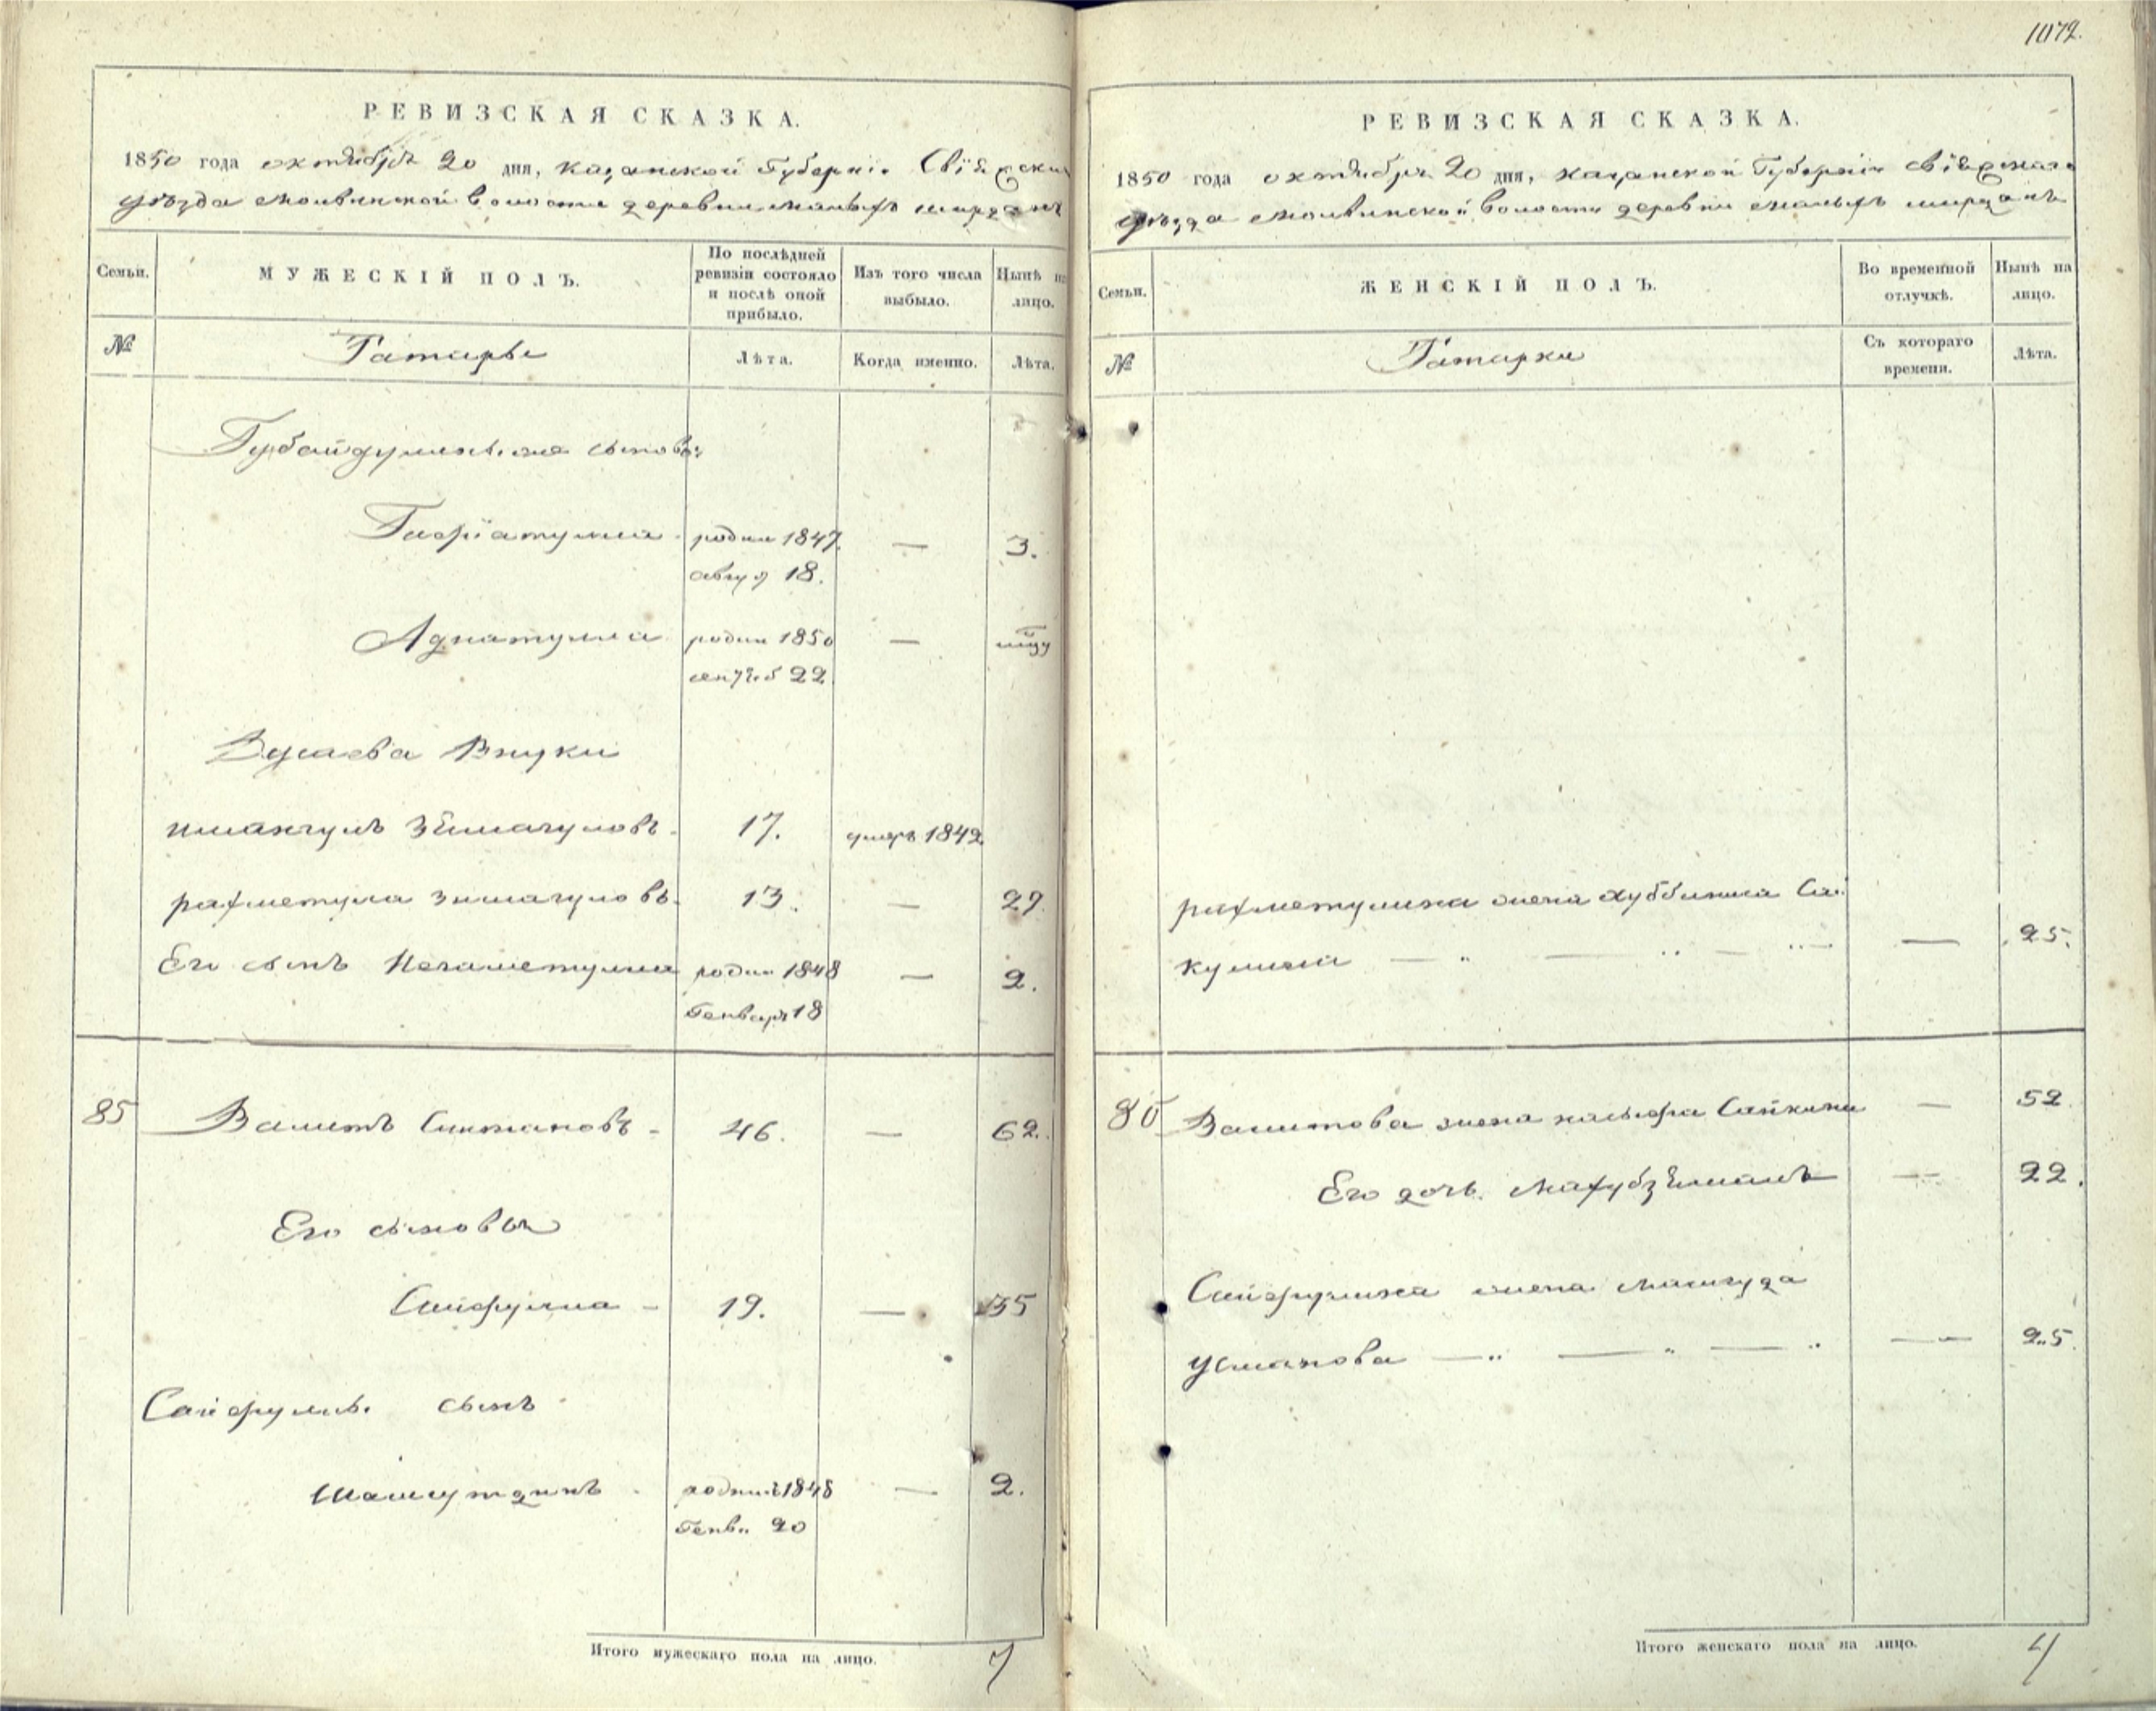 1072.
РЕВИЗСКАЯ СКАЗКА.
1850 года октября 20 дня, Казанской Губерніи Свіяжска
уѣзда Молвинской Волости деревни Малыхъ Ширданъ
Семьи.
МУЖЕСКІЙ ПОЛЪ.
По послѣдней
ревизіи состояло
и послѣ оной
прибыло.
Изъ того числа
выбыло.
Нынѣ на
лицо.
№
Татары
Лѣта.
Когда именно.
Лѣта.
Губайдуллины сыновья
Гафіатулла родил 1847 — 3.
август 18.
Аднатулла родил 1850 — мцу
сентяб 22
внуки
Ишангулъ Зѣмагуловъ 17. умеръ 1842.
Рахметулла Зимагуловъ 13. — 29
Его сынъ Негаметулла родил 1848 — 2.
Генваря 18
85 Валитъ Султановъ 46. — 62.
Его сыновья
Сайфулла 19. — 35
Сайфулы сынъ
Шамсутдинъ родился 1848 — 2.
Генв. 20
Итого мужескаго пола на лицо. 7
РЕВИЗСКАЯ СКАЗКА.
1850 года октября 20 дня, Казанской Губерніи Свіяжскаго
уѣзда Молвинской Волости деревни Малыхъ Ширданъ
Семьи.
ЖЕНСКІЙ ПОЛЪ.
Во временной
отлучкѣ.
Нынѣ на
лицо.
№
Татарки
Съ котораго
времени.
Лѣта.
Рахметуллина жена Хуббиниса Сай
кулова — 25.
85 Валитова жена Сайкина — 52
Его дочь Махубзѣманъ — 22.
Сайфуллина жена Машгуда
Усманова — 25.
Итого женскаго пола на лицо. 4